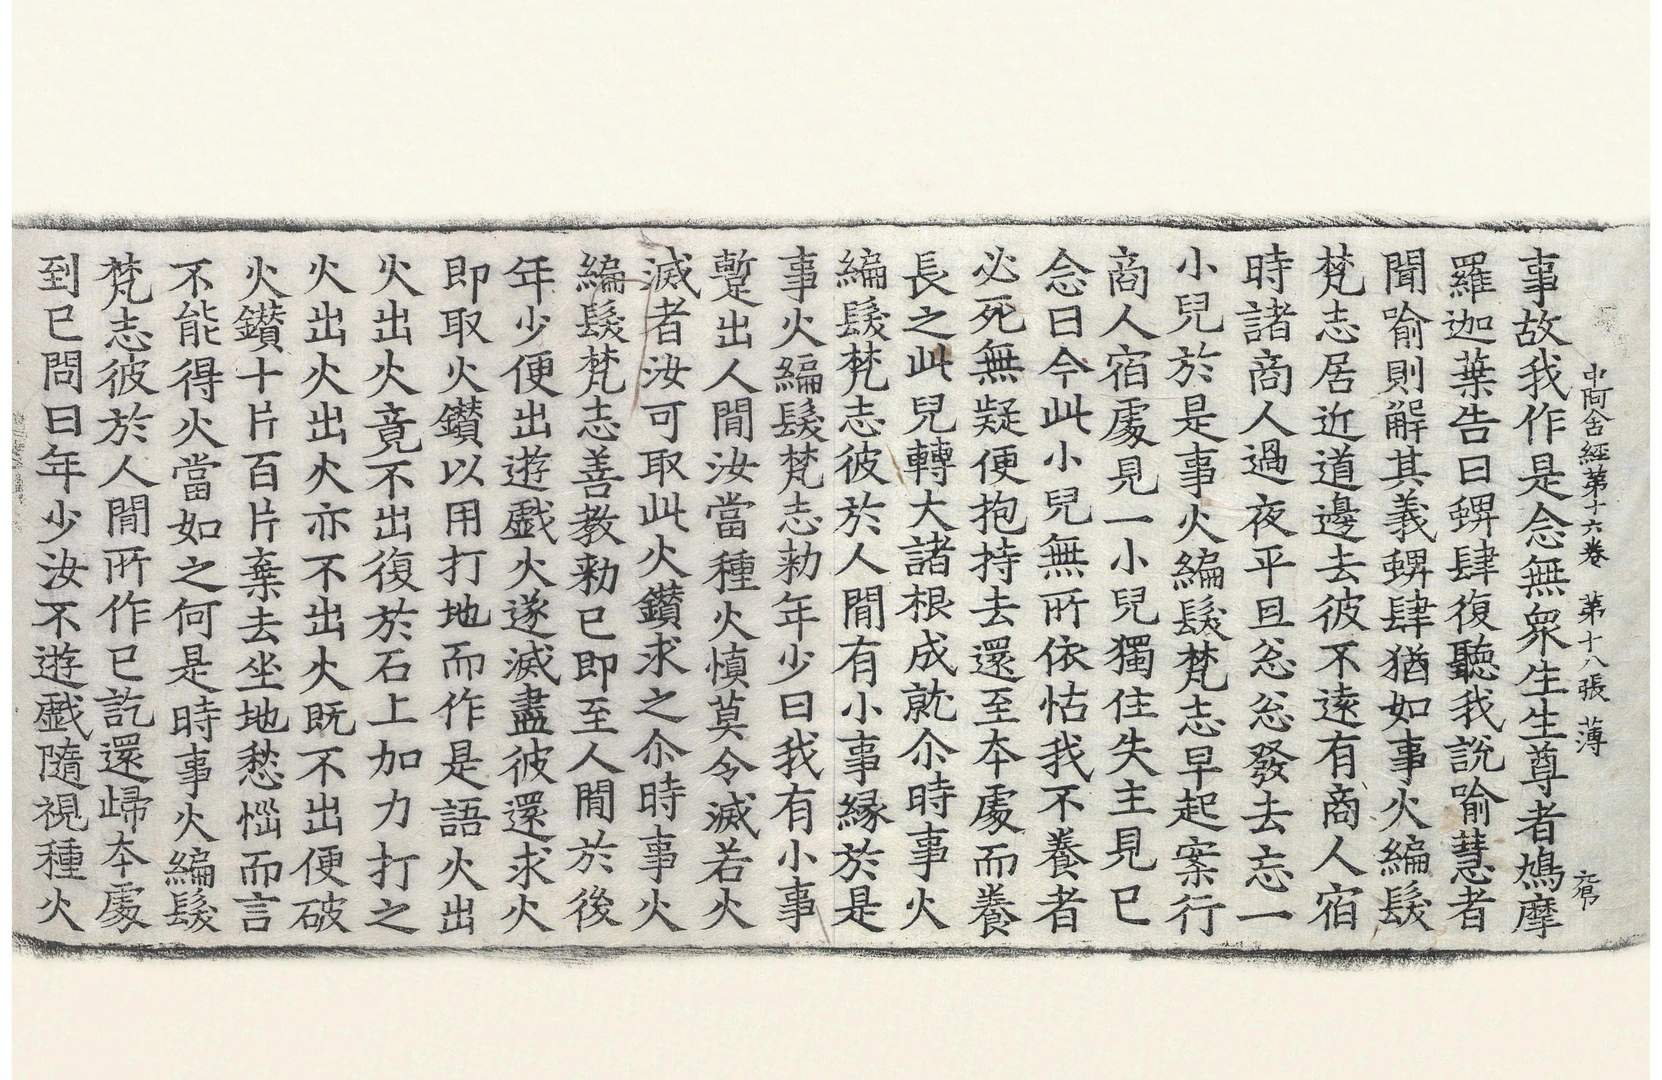 中阿含經第十六卷　第十八張　薄
事故我作是念無衆生生尊者鳩摩
羅迦葉告曰蜱肆復聽我說喻慧者
聞喻則解其義蜱肆猶如事火編髮
梵志居近道邊去彼不遠有商人宿
時諸商人過夜平旦忩忩發去忘一
小兒於是事火編髮梵志早起案行
商人宿處見一小兒獨住失主見已
念曰今此小兒無所依怙我不養者
必死無疑便抱持去還至本處而養
長之此兒轉大諸根成就尒時事火
編髮梵志彼於人閒有小事緣於是
事火編髮梵志勑年少曰我有小事
蹔出人閒汝當種火慎莫令滅若火
滅者汝可取此火鑚求之尒時事火
編髮梵志善教勑已即至人閒於後
年少便出遊戲火遂滅盡彼還求火
即取火鑚以用打地而作是語火出
火出火竟不出復於石上加力打之
火出火出火亦不出火既不出便破
火鑚十片百片棄去坐地愁惱而言
不能得火當如之何是時事火編髮
梵志彼於人閒所作已訖還歸本處
到已問曰年少汝不遊戲隨視種火